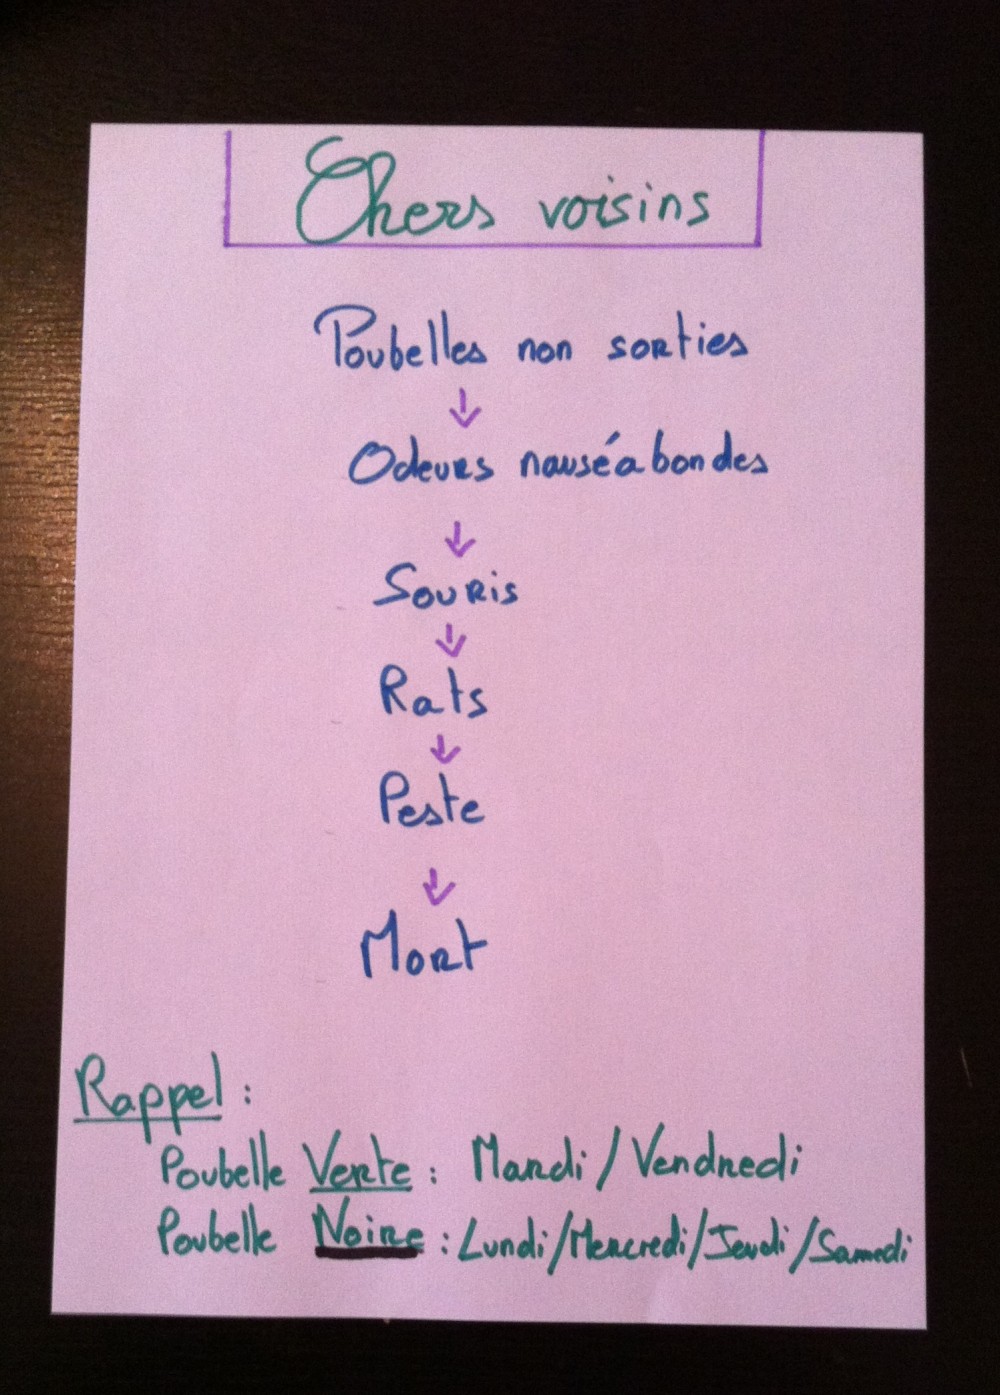 Chers voisins
Poubelles non sorties
↓
Odeurs nauséabondes
↓
Souris
↓
Rats
↓
Peste
↓
Mort
Rappel :
Poubelle Verte : Mardi / Vendredi
Poubelle Noire : Lundi/Mercredi/Jeudi/Samedi